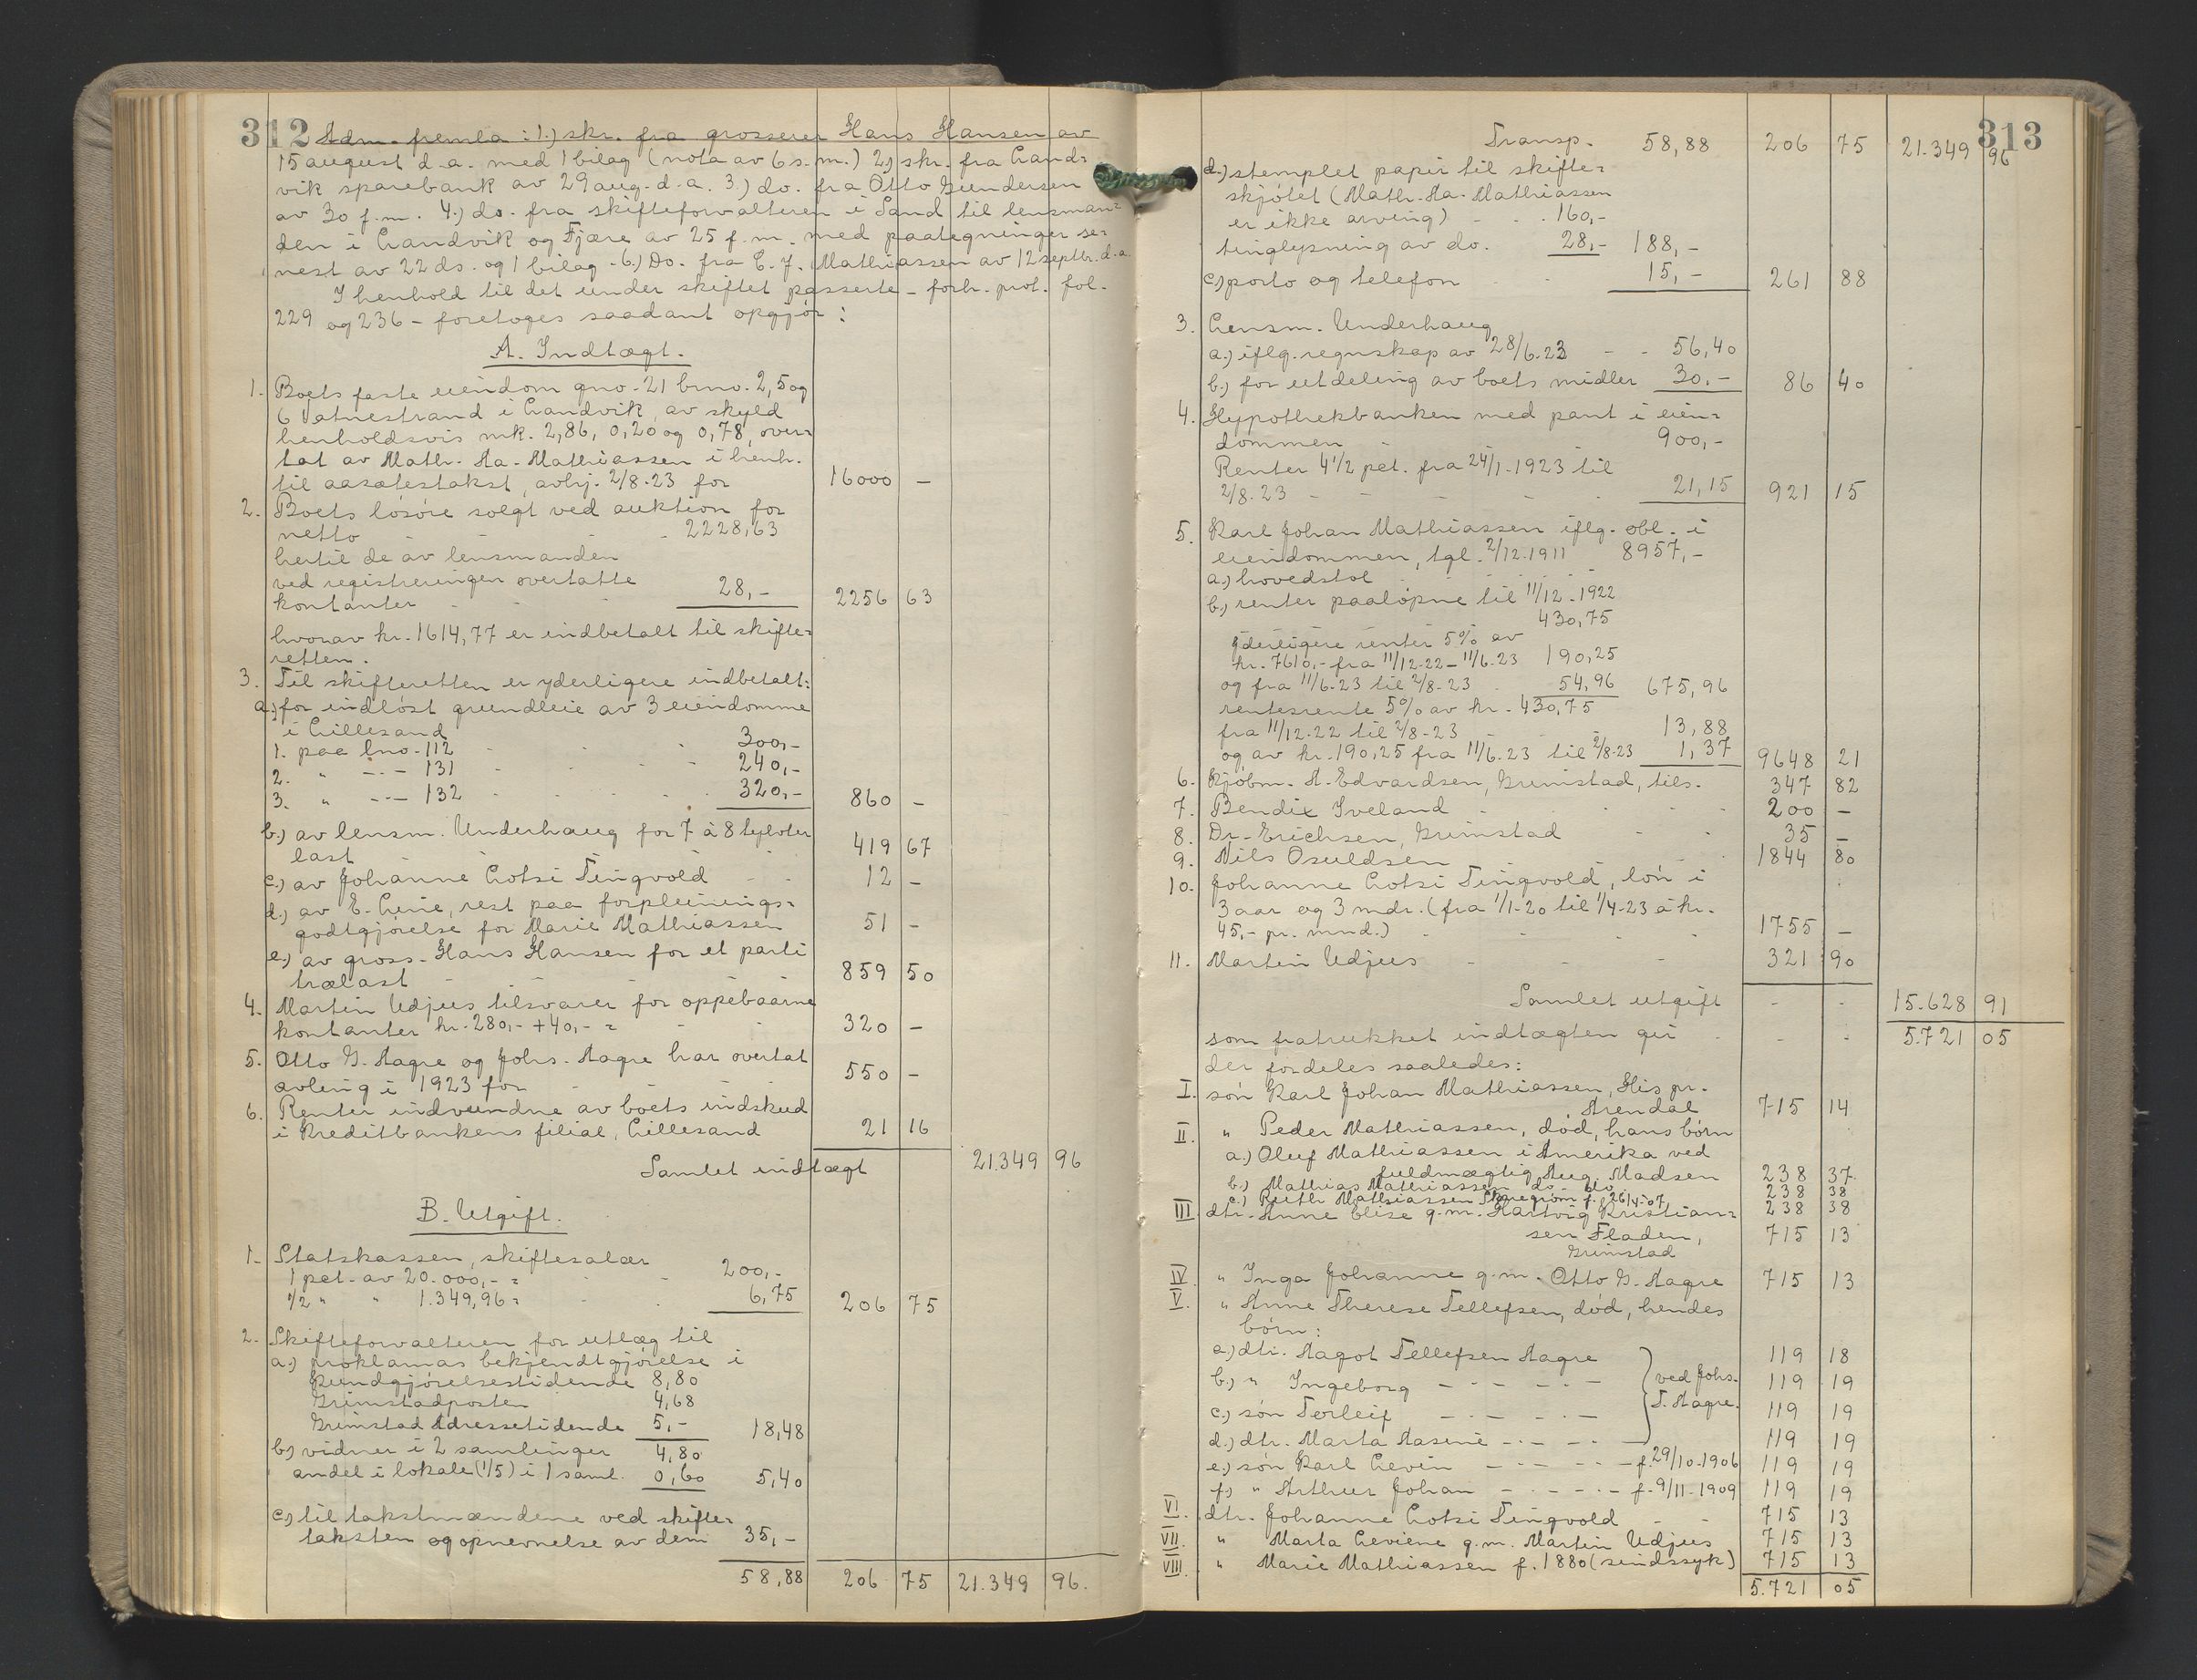 312 Adm. fremla: 1.) skr. fra grosserer Hans Hansen av
15 august d.a. med 1 bilag (nota av 6 s.m.) 2) skr. fra Land-
vik sparebank av 29 aug. d.a. 3.) do. fra Otto Gundersen
av 30 f.m. 4.) do. fra skifteforvalteren i Sand til lensman-
den i Landvik og Fjære av 25 f.m. med paategninger se-
nest av 22 ds. og 1 bilag. 6.) Do. fra E. J. Mathiassen av 12 septbr. d.a.
I henhold til det under skiftet passerte - forh. prot. fol.
229 og 236 - foretoges saadant opgjør:
A. Indtægt.
1. Boets faste eiendom gno. 21 bnr. 2, 5 og
6 atnestrand i Landvik, av skyld
henholdsvis mk. 2,86, 0,20 og 0,78, over-
tat av Math. Aa. Mathiassen i henh.
til aasætestakst, avhj. 2/8-23 for 16000 -
2. Boets løsøre solgt ved auktion for
netto 2228,63
hertil de av lensmanden
ved registreringen overtatte
kontanter 28,- 2256 63
hvorav kr. 1614,77 er indbetalt til skifte-
retten.
3. Til skifteretten er yderligere indbetalt:
a.) for indløst grundleie av 3 eiendomme
i Lillesand
1. paa lno. 112 300,-
2. " -·- 131 240,-
3. " -·- 132 320,- 860 -
b.) av lensm. Underhaug for 7 à 8 tylvter
last 419 67
c.) av Johanne Lotsi Tingvold 12 -
d.) av E. Linie, rest paa forpleinings-
godtgjørelse for Marie Mathiassen 51 -
e.) av gross. Hans Hansen for et parti
trælast 859 50
4. Martin Udjus tilsvarer for oppebaarne
kontanter kr. 280,- + 40,- = 320 -
5. Otto G. Aagre og Johs. Aagre har overtat
avling i 1923 for 550 -
6. Renter indvundne av boets indskud
i Kreditbankens filial, Lillesand 21 16
Samlet indtægt 21.349 96
B. Utgift.
1. Statskassen, skiftesalær
1 pct. av 20.000,- = 200,-
1/2 " " 1.349,96 = 6,75 206 75
2. Skifteforvalteren for utlæg til
a.) proklamas bekjendtgjørelse i
Kundgjørelsestidende 8,80
Grimstadposten 4,68
Grimstad Adressetidende 5,- 18,48
b.) vidner i 2 samlinger 4,80
andel i lokale (1/5) i 1 saml. 0,60 5,40
c.) til takstmændene ved skifte-
taksten og opnevnelse av dem 35,-
58,88 206 75 21.349 96.
313
Transp. 58,88 206 75 21.349 96
d.) stemplet papir til skifte-
skjøtet (Math. Aa. Mathiassen
er ikke arving) 160,-
tinglysning av do. 28,- 188,-
e.) porto og telefon 15,- 261 88
3. Lensm. Underhaug
a.) iflg. regnskap av 28/6.23 56,40
b.) for utdeling av boets midler 30,- 86 40
4. Hypothekbanken med pant i eien-
dommen 900,-
Renter 4 1/2 pct. fra 24/1-1923 til
2/8-23 21,15 921 15
5. Karl Johan Mathiassen iflg. obl. i
eiendommen, tgl. 2/12-1911 8957,-
a.) hovedstol
b.) renter paaløpne til 11/12-1922
430,75
yderligere renter 5% av
kr. 7610,- fra 11/12-22 - 11/6-23 190,25
og fra 11/6-23 til 2/8-23 54,96 675,96
rentesrente 5% av kr. 430,75
fra 11/12-22 til 2/8-23 13,88
og av kr. 190,25 fra 11/6-23 til 2/8-23 1,37 9648 21
6. Kjøbm. A. Edvardsen, Grimstad, tils. 347 82
7. Bendix Iveland 200 -
8. Dr. Erichsen, Grimstad 35 -
9. Nils Osuldsen 1844 80
10. Johanne Lotsi Tingvold, løn i
3 aar og 3 mdr. (fra 1/1-20 til 1/4-23 à kr.
45,- pr. mnd.) 1755 -
11. Martin Udjus 321 90
Samlet utgift 15.628 91
som fratrukket indtægten gir 5.721 05
der fordeles saaledes:
I. søn Karl Johan Mathiassen, His pr.
Arendal 715 14
II. " Peder Mathiassen, død, hans børn
a.) Oluf Mathiassen i Amerika ved
fuldmægtig Aug. Madsen 238 37
b.) Mathias Mathiassen do. do 238 38
c.) Ruth Mathiassen Skaregrøm f. 26/4-07 238 38
III dtr. Anne Elise g.m. Hartvig Kristian-
sen Fladen,
Grimstad 715 13
IV. " Inga Johanne g.m. Otto G. Aagre 715 13
V. " Anne Therese Tellefsen, død, hendes
børn:
a.) dtr. Aagot Tellefsen Aagre 119 18
b.) " Ingeborg -·- -·- ved Johs. 119 19
c.) søn Torleif -·- -·- T. Aagre. 119 19
d.) dtr. Marta Aasine -·- -·- 119 19
e.) søn Karl Levin -·- -·- f. 29/10-1906 119 19
f.) " Arthur Johan -·- -·- f. 9/11-1909 119 19
VI. dtr. Johanne Lotsi Tingvold 715 13
VII. " Marta Leviene g.m. Martin Udjus 715 13
VIII. " Marie Mathiassen f. 1880 (sindssyk) 715 13
5.721 05